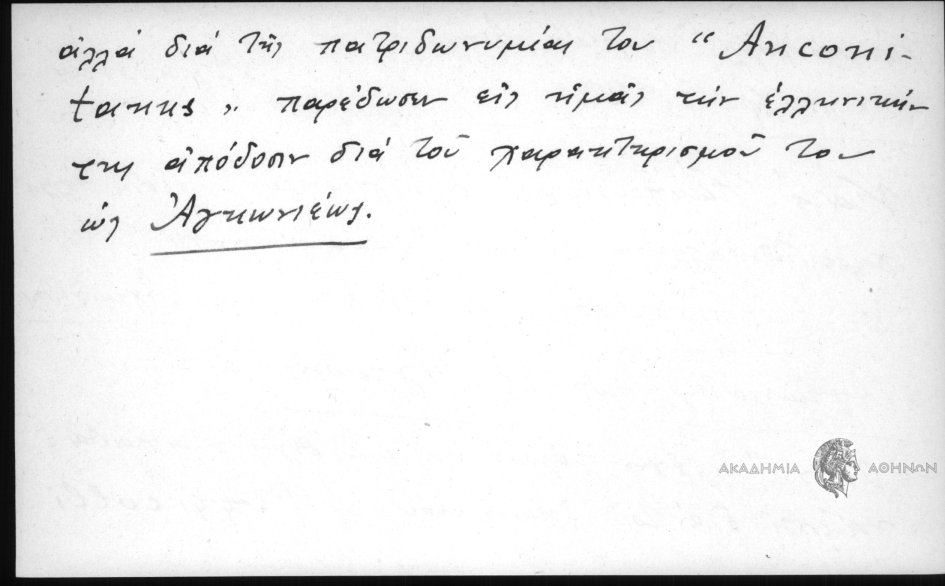 ἀλλά διά τῆς πατριδωνυμίας του "Anconi-
tanus" παρέδωσεν εἰς ἡμᾶς τήν ἑλληνικήν
της ἀπόδοσιν διά τοῦ χαρακτηρισμοῦ του
ὡς Ἀγκωνιέως.
ΑΚΑΔΗΜΙΑ ΑΘΗΝΩΝ